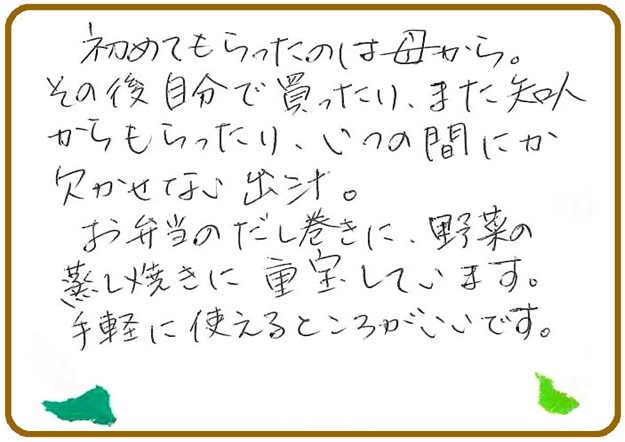 初めてもらったのは母から。
その後自分で買ったり、また知人
からもらったり、いつの間にか
欠かせない出汁。
お弁当のだし巻きに、野菜の
蒸し焼きに重宝しています。
手軽に使えるところがいいです。